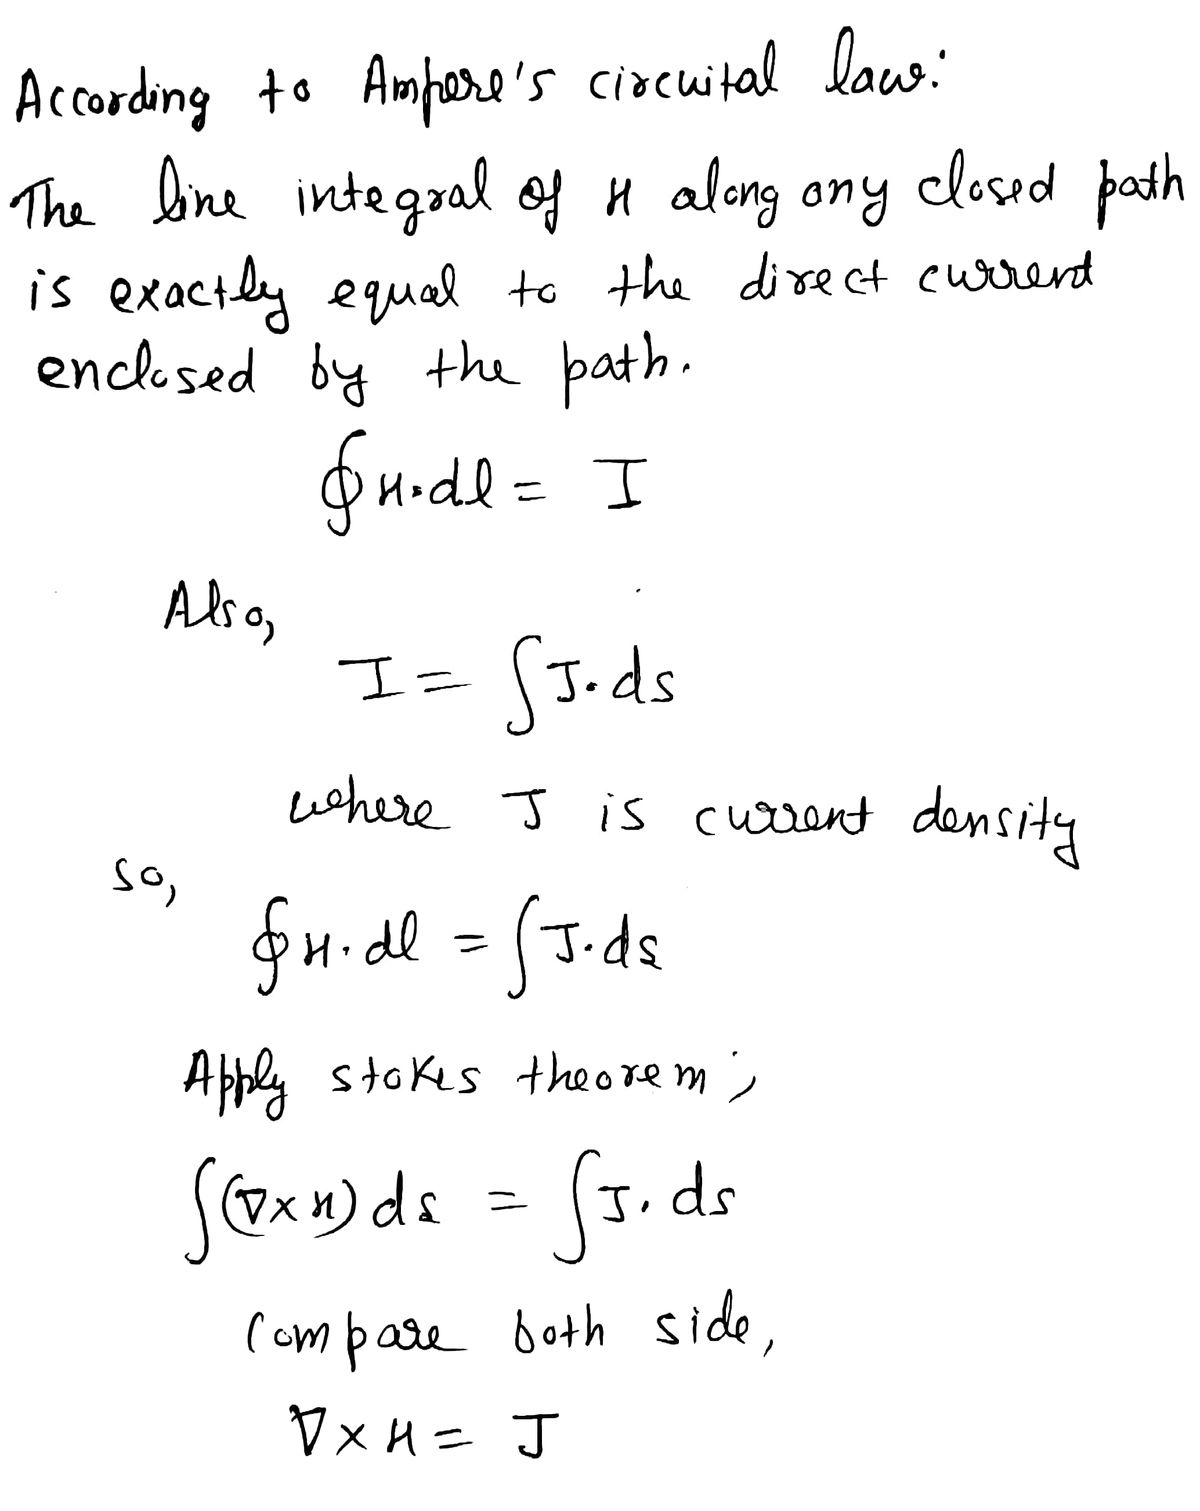 According to Ampere's circuital law:
The line integral of H along any closed path
is exactly equal to the direct current
enclosed by the path.
∮H·dl = I
Also,
I = ∫J·ds
where J is current density
so,
∮H·dl = ∫J·ds
Apply stokes theorem;
∫(∇×H) ds = ∫J·ds
Compare both side,
∇×H = J